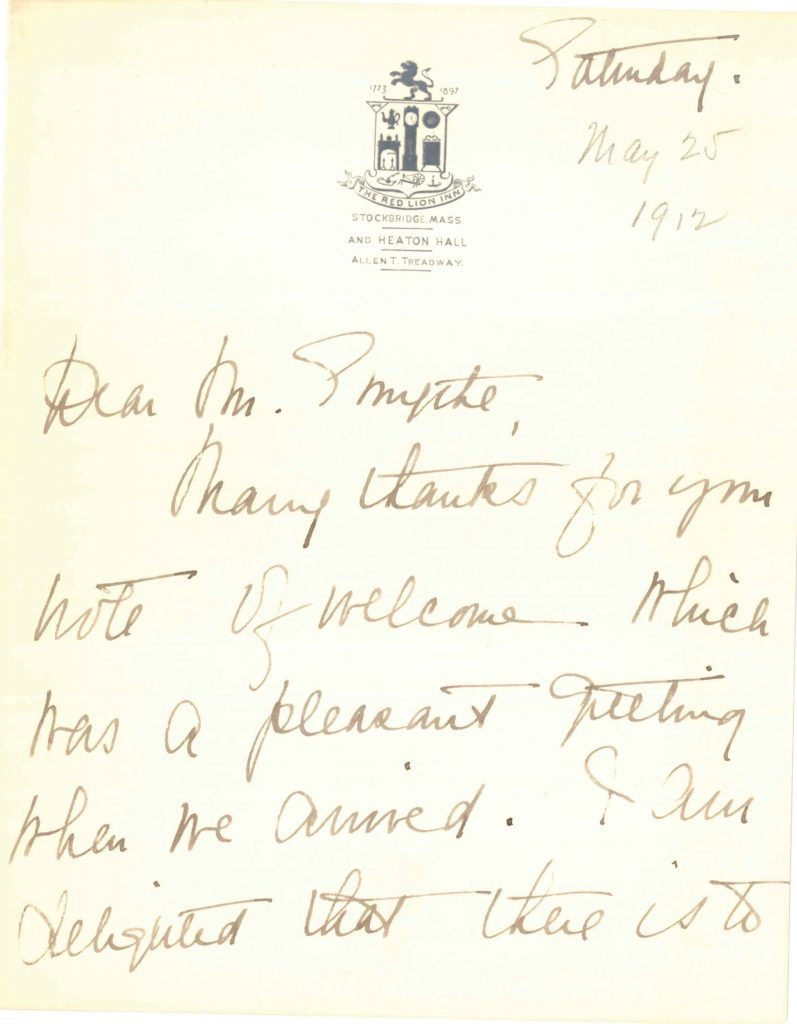 Saturday.
May 25
1912
1773 1897
THE RED LION INN
STOCKBRIDGE, MASS.
AND HEATON HALL
ALLEN T. TREADWAY.
Dear Mr. Smythe,
Many thanks for your
note of welcome which
was a pleasant greeting
when we arrived. I am
delighted that there is to